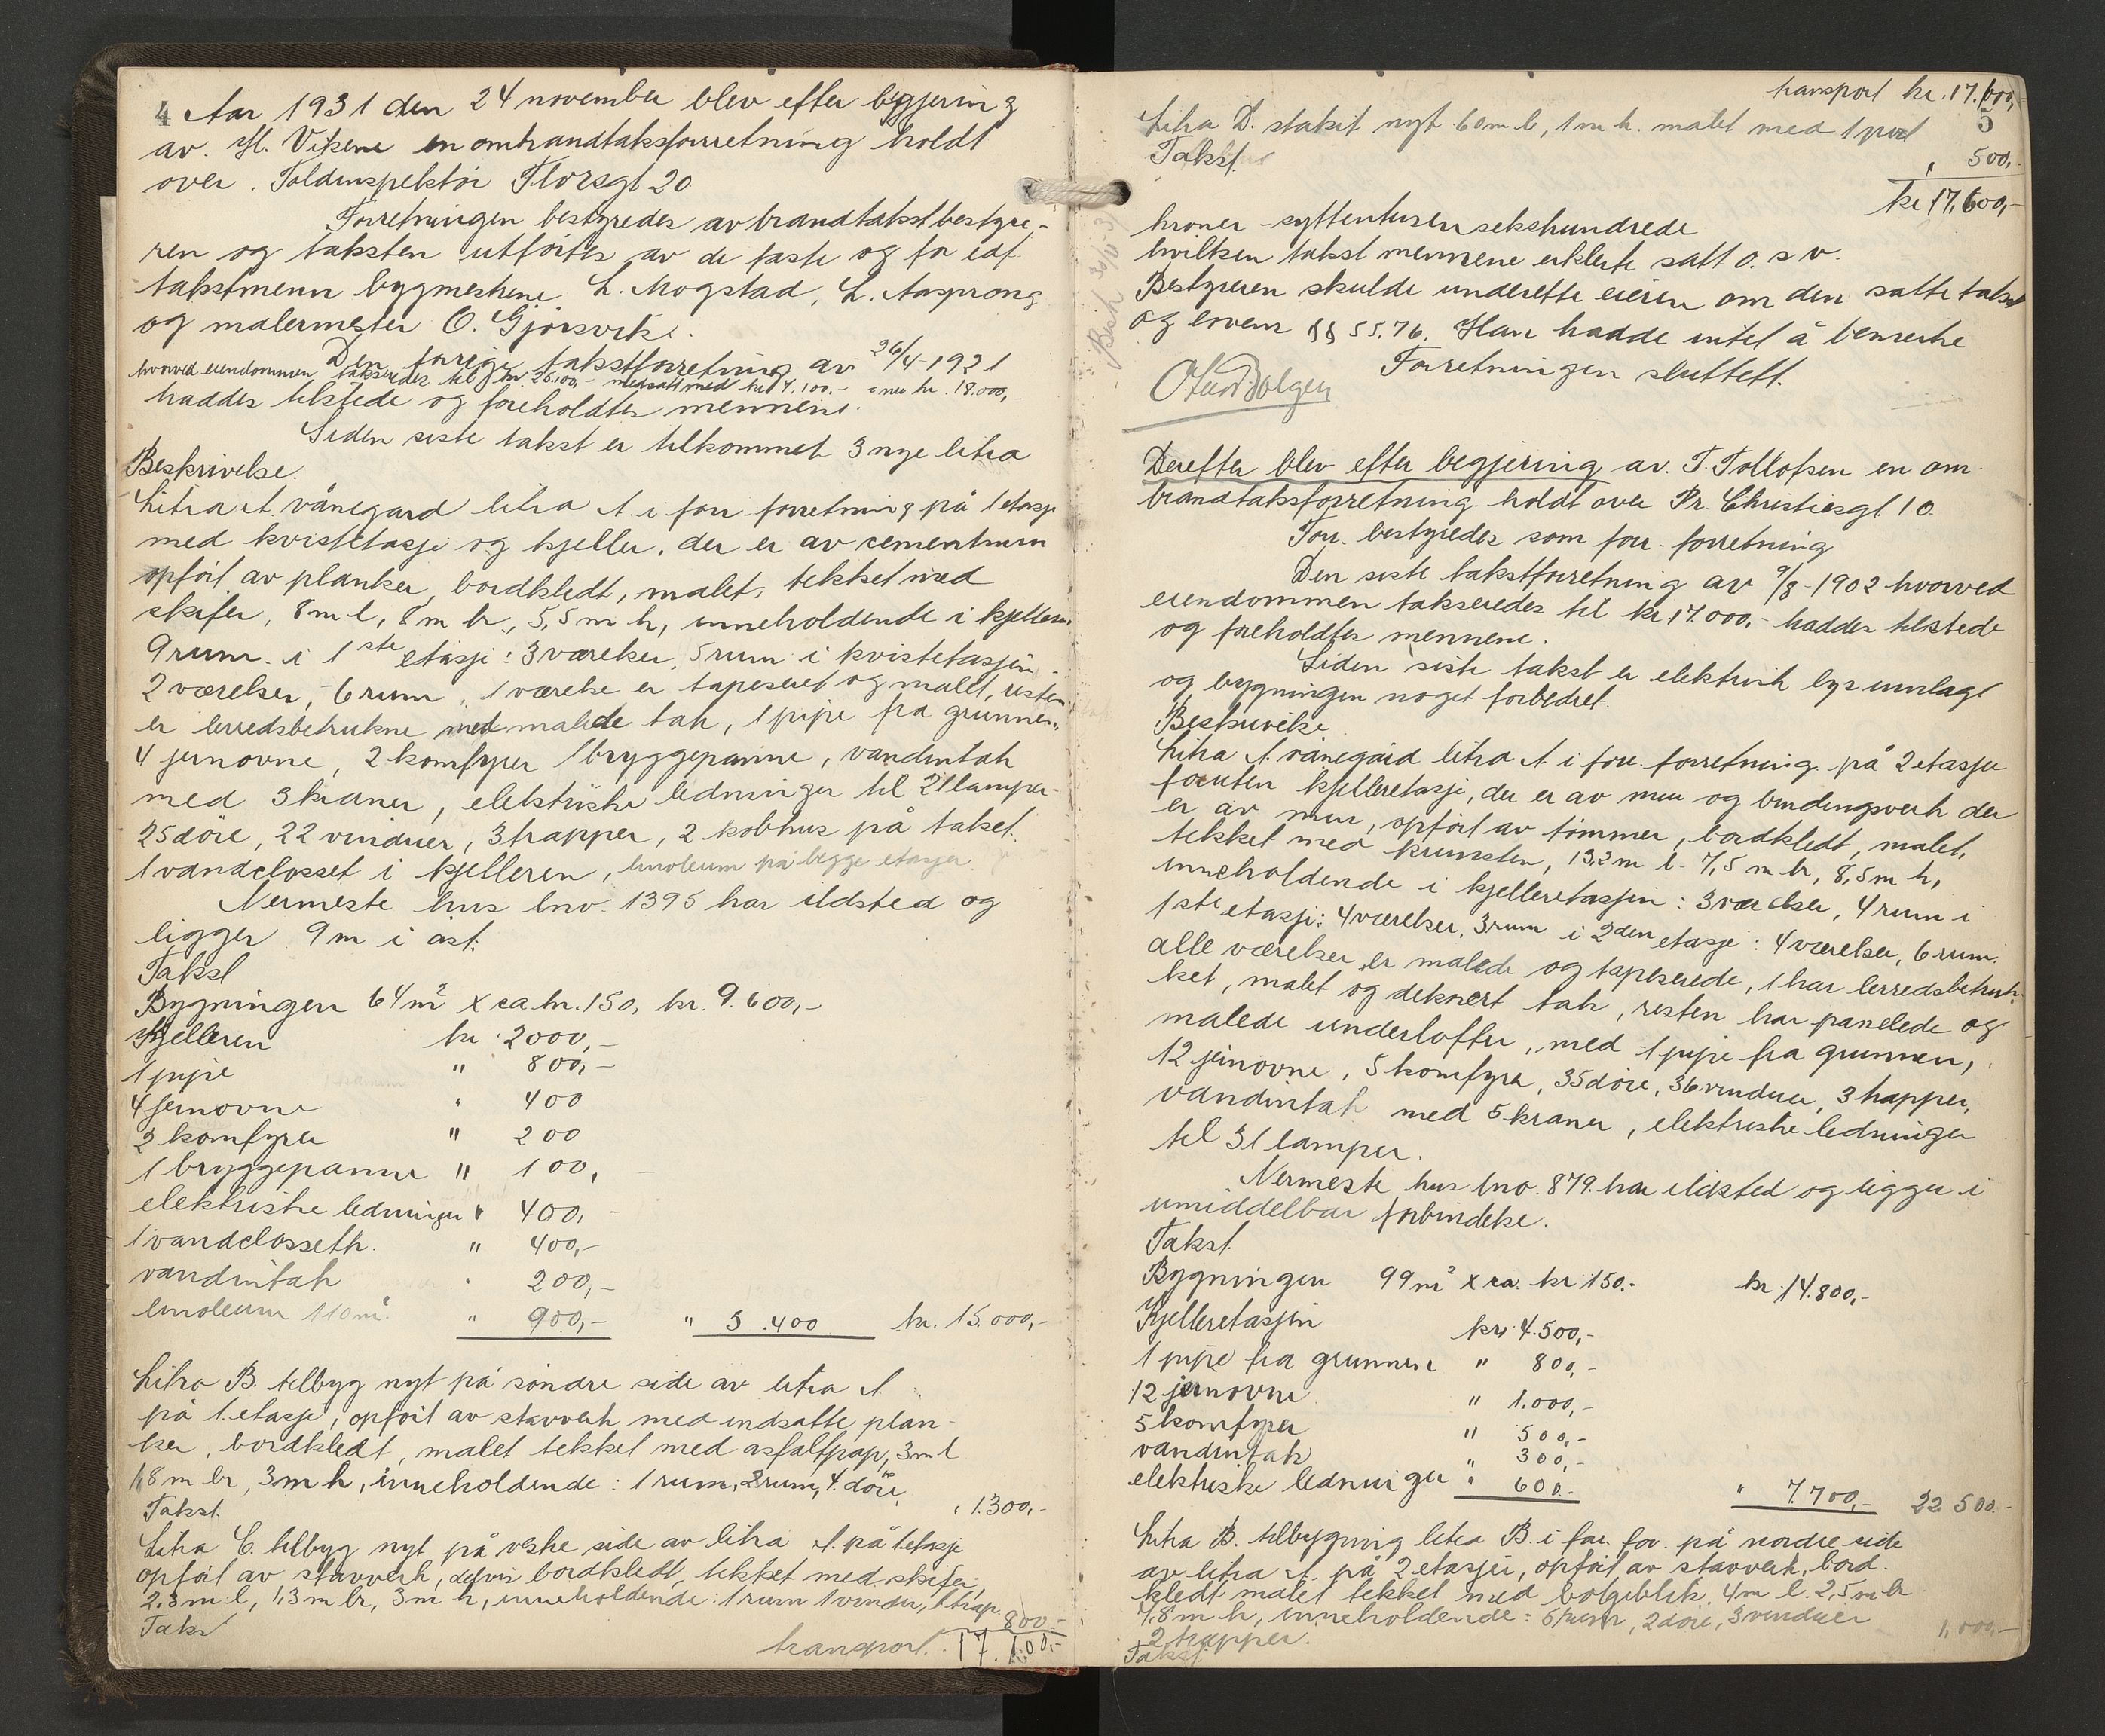 4 Aar 1931 den 24 november blev efter begjering
av. Hl. Vikene en ombrandtaksforretning holdt
over. Toldinspektør Florsgt 20
Forretningen bestyredes av brandtakstbestyre-
ren og taksten utførtes av de faste og for edf.
takstmenn bygmestrene L. Mogstad, L. Aasprong
og malermester O. Gjørsvik.
Den forrige takstforretning av 26/4-1921
hvorved eiendommen takseredes til kr. 25.100,- nedsatt med kr. 7.100.- = neu kr. 18.000,-
haddes tilstede og foreholdtes mennene.
Siden siste takst er tilkommet 3 nye litra
Beskrivelse.
Litra A. vånegard litra A i forr. forretning på 1 etasje
med kvistetasje og kjeller, der er av cementmur
opført av planker, bordkledt, malet, tekket med
skifer, 8 m l, 8 m br, 5,5 m h, inneholdende i kjelleren
9 rum. i 1ste etasje: 3 værelser, 5 rum i kvistetasjen
2 værelser, 6 rum, 1 værelse er tapeseret og malet, resten
er lerredsbetrukne med malede tak, 1 pipe fra grunnen,
4 jernovne, 2 komfyrer 1 bryggepanne, vandintak
med 3 kraner, elektriske ledninger til 21 lamper
25 døre, 22 vinduer, 3 trapper, 2 kobhus på taket.
1 vandclosset i kjelleren, linoleum på begge etasjer
Nermeste hus bno. 1395 har ildsted og
ligger 9 m i øst.
Takst
Bygningen 64 m² x ca. kr. 150, kr. 9.600,-
Kjelleren kr. 2000,-
1 pipe " 800,-
4 jernovne " 400
2 komfyrer " 200
1 bryggepanne " 100,-
elektriske ledninger " 400,-
1 vandclosseth. " 400,-
vandintak " 200,-
linoleum 110 m². " 900,- " 5.400 kr. 15.000,-
Litra B. tilbyg nyt på søndre side av litra A
på 1. etasje, opført av stavverk med indsatte plan-
ker, bordkledt, malet tekket med asfaltpap, 3 m l
1,8 m br, 3 m h, inneholdende: 1 rum, 2 rum, 4 døre,
Takst. " 1.300,-
Litra C. tilbyg nyt på vestre side av litra A. på 1 etasje
opført av stavverk, delvis bordkledt, tekket med skifer,
2,3 m l, 1,3 m br, 3 m h, inneholdende: 1 rum 1 vindu, 1 trap.
Takst 800.-
transport. 17.100,-
transport kr. 17.100,-
5
Litra D. stakit nyt 60 m l, 1 m h. malet med 1 port
Takst. " 500,-
kr 17,600,-
kroner - syttentusen sekshundrede
hvilken takst mennene erklerte satt o. s v.
Bestyreren skulde underrette eieren om den satte takst
og loven §§ 55.76. Han hadde intet å bemerke
Forretningen sluttett.
Derefter blev efter begjering av. T. Tollofsen en om-
brandtaksforretning holdt over Pr. Christiesgt. 10
Forr. bestyredes som forr. forretning
Den siste takstforretning av 9/8-1902 hvorved
eiendommen takseredes til kr. 17.000,- haddes tilstede
og foreholdtes mennene.
Siden siste takst er elektrisk lys innlagt
og bygningen noget forbedret.
Beskrivelse
Litra A vånegård litra A. i forr. forretning på 2 etasjer
foruten kjelleretasje, der er av mur og bindingsverk der
er av mur, opført av tømmer, bordkledt, malet,
tekket med krumsten, 13,2 m l. 7,5 m br, 8,5 m h,
inneholdende i kjelleretasjen: 3 værelser, 4 rum i
1ste etasje: 4 værelser, 3 rum i 2den etasje: 4 værelser, 6 rum.
alle værelser er malede og tapeserede, 1 har lerredsbetruk-
ket, malet og dekorert tak, resten har panelede og
malede underlofter, med 1 pipe fra grunnen,
12 jernovne, 5 komfyrer, 35 døre, 36 vinduer, 3 trapper,
vandintak med 5 kraner, elektriske ledninger
til 31 lamper.
Nermeste hus bno. 879. har ildsted og ligger i
umiddelbar forbindelse.
Takst.
Bygningen 99 m² x ca. kr. 150.- kr. 14.800,-
Kjelleretasjen kr. 4.500,-
1 pipe fra grunnen " 800,-
12 jernovne " 1.000,-
5 komfyrer " 500,-
vandintak " 300,-
elektriske ledninger " 600.- " 7.700,- 22.500.-
Litra B. tilbygning litra B. i forr. for. på nordre side
av litra A på 2 etasjer, opført av stavverk, bord-
kledt malet tekket med bølgeblik. 4 m l. 2,5 m br
4,8 m h, inneholdende: 6 rum, 2 døre, 3 vinduer
2 trapper.
Takst. 1.000,-